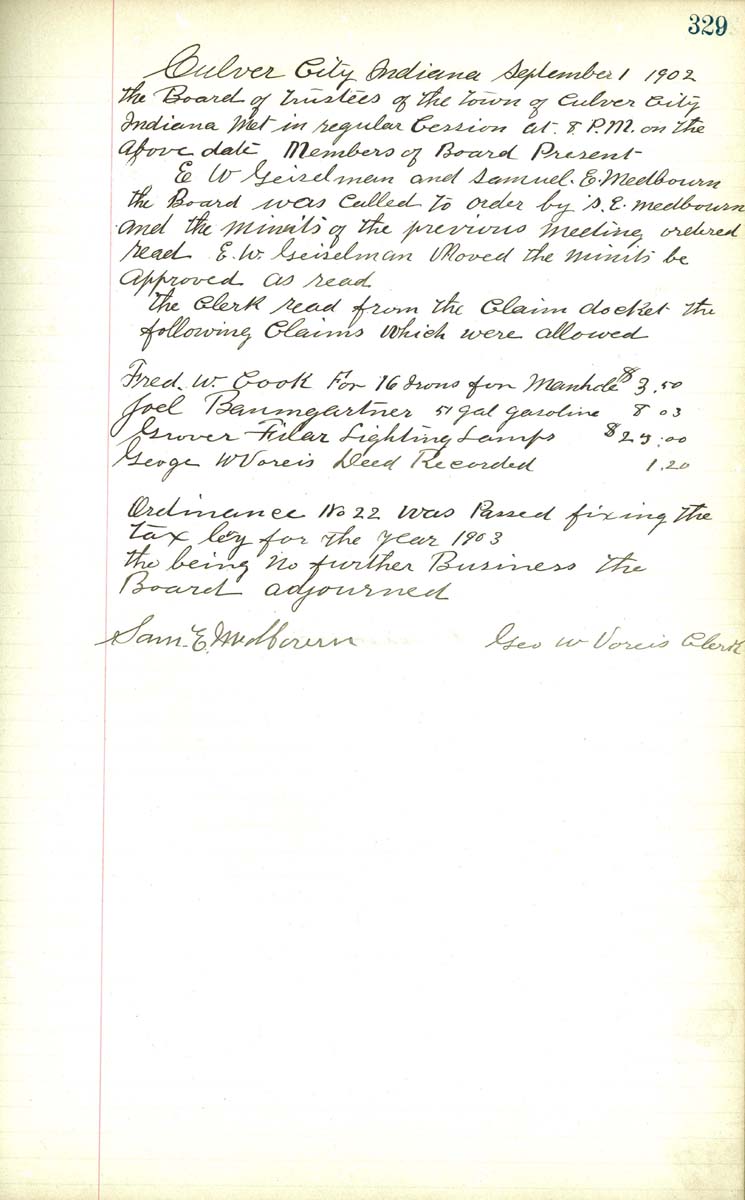 329
Culver City Indiana September 1 1902
the Board of Trustees of the Town of Culver City
Indiana Met in regular Cession at 8 P.M. on the
above date Members of Board Present
E W Geiselman and Samuel. E. Medbourn
the Board was Called to order by S. E. Medbourn
and the minits of the previous meeting ordered
read E. W. Geiselman Moved the minits be
approved as read
the Clerk read from the Claim docket the
following Claims which were allowed
Fred. W. Cook For 16 Irons for Manhole $ 3.50
Joel Baumgartner 51 gal gasoline 8 03
Grover Filar Lighting Lamps $ 29.00
Geoge W Voreis Deed Recorded 1.20
Ordinance No 22 was Passed fixing the
tax levy for the Year 1903
the being no further Business the
Board adjourned
Sam. E. Medbourn Geo W Voreis Clerk